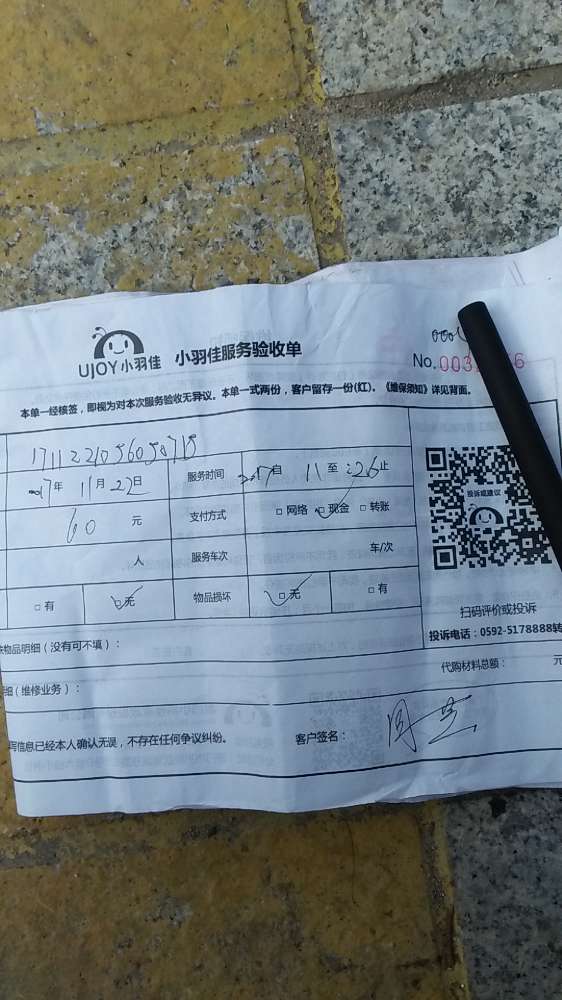 UJOY小羽佳 小羽佳服务验收单
No.003
6
本单一经核签，即视为对本次服务验收无异议。本单一式两份，客户留存一份(红)。《维保须知》详见背面。
2017年 11月 22日 服务时间 2017自 11 至 :26止
60 元 支付方式 □网络 □现金 □转账
人 服务车次 车/次
□有 □无 物品损坏 □无 □有
投诉或建议
扫码评价或投诉
投诉电话：0592-5178888转
物品明细（没有可不填）：
代购材料总额： 元
细（维修业务）：
写信息已经本人确认无误，不存在任何争议纠纷。 客户签名：